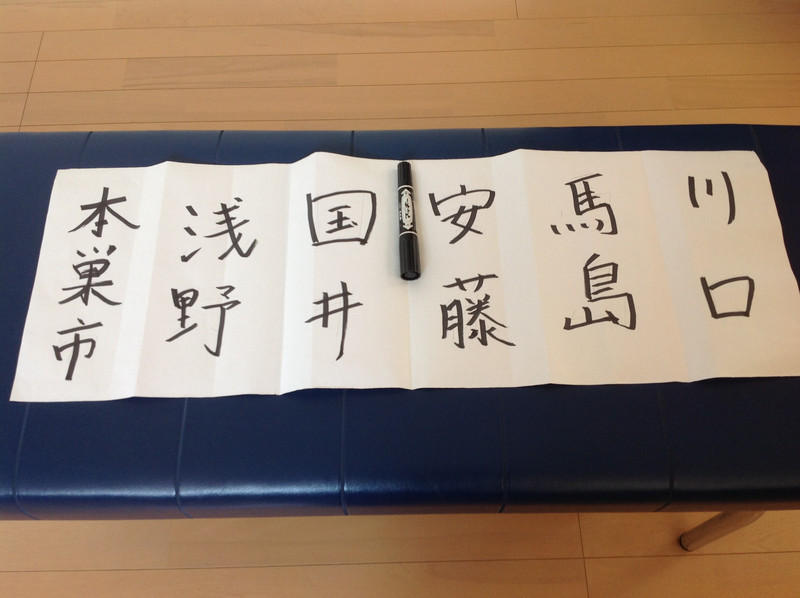 川口
馬島
安藤
国井
浅野
本巣市